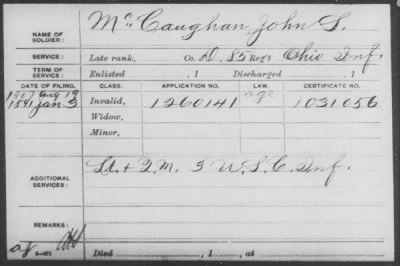 NAME OF SOLDIER: McCaughan, John S.
SERVICE: Late rank, Co. D, 85 Reg't Ohio Inf.
TERM OF SERVICE: Enlisted , 1 Discharged , 1
DATE OF FILING. CLASS. APPLICATION NO. LAW. CERTIFICATE NO.
1907 Aug 19 age
1891 Jan 3 Invalid, 1260141 1031056
Widow,
Minor,
ADDITIONAL SERVICES: Lt + Q.M. 5 U.S.C. Inf.
REMARKS:
Died , 1 , at